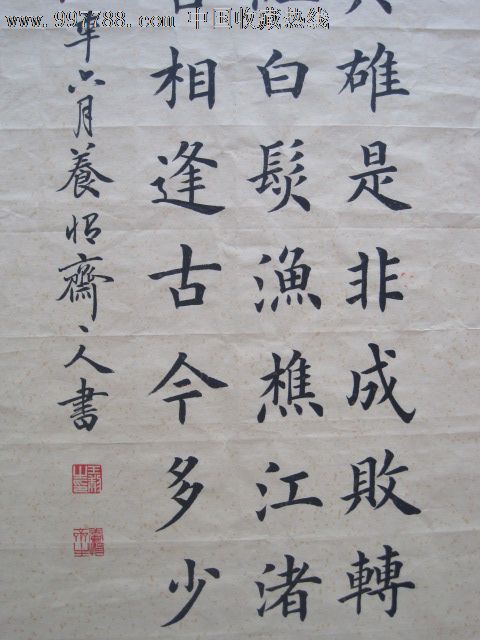 www.997788.com 中国收藏热线
雄是非成敗轉
白髮漁樵江渚
相逢古今多少
年六月養齋人書